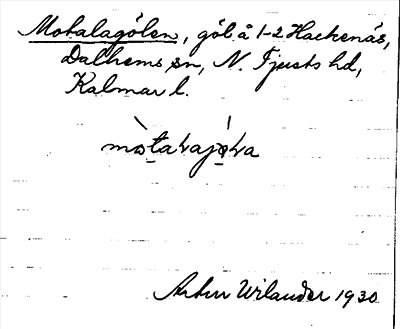 Mokalagölen, göl å 1-2 Hackenäs,
Dalhems sn, N. Tjusts hd,
Kalmar l.
Arthur Wilander 1930